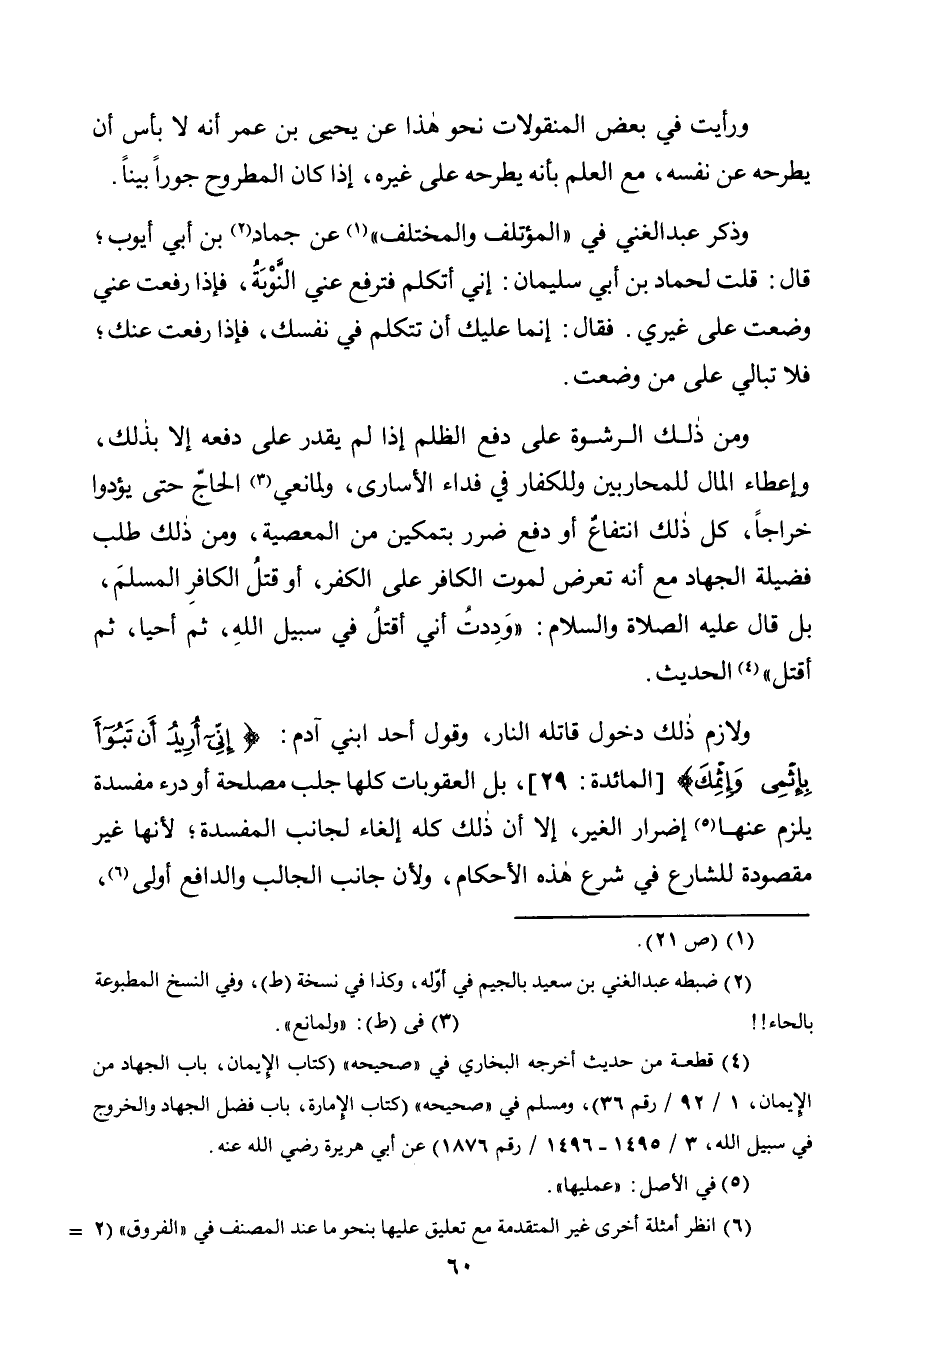 ورأيت في بعض المنقولات نحو هٰذا عن يحيى بن عمر أنه لا بأس أن
يطرحه عن نفسه، مع العلم بأنه يطرحه على غيره، إذا كان المطروح جوراً بيناً.
وذكر عبدالغني في «المؤتلف والمختلف»(١) عن جماد(٢) بن أبي أيوب؛
قال: قلت لحماد بن أبي سليمان: إني أتكلم فترفع عني النَّوْبَةُ، فإذا رفعت عني
وضعت على غيري. فقال: إنما عليك أن تتكلم في نفسك، فإذا رفعت عنك؛
فلا تبالي على من وضعت.
ومن ذٰلك الرشوة على دفع الظلم إذا لم يقدر على دفعه إلا بذٰلك،
وإعطاء المال للمحاربين وللكفار في فداء الأسارى، ولمانعي(٣) الحاجّ حتى يؤدوا
خراجاً، كل ذٰلك انتفاعٌ أو دفع ضرر بتمكين من المعصية، ومن ذٰلك طلب
فضيلة الجهاد مع أنه تعرض لموت الكافر على الكفر، أو قتلُ الكافرِ المسلمَ،
بل قال عليه الصلاة والسلام: «وَدِدتُ أني أقتلُ في سبيل اللهِ، ثم أحيا، ثم
أقتل»(٤) الحديث.
ولازم ذٰلك دخول قاتله النار، وقول أحد ابني آدم: ﴿إِنِّيٓ أُرِيدُ أَن تَبُوٓأَ
بِإِثْمِى وَإِثْمِكَ﴾ [المائدة: ٢٩]، بل العقوبات كلها جلب مصلحة أو درء مفسدة
يلزم عنها(٥) إضرار الغير، إلا أن ذٰلك كله إلغاء لجانب المفسدة؛ لأنها غير
مقصودة للشارع في شرع هٰذه الأحكام، ولأن جانب الجالب والدافع أولى(٦)،
(١) (ص ٢١).
(٢) ضبطه عبدالغني بن سعيد بالجيم في أوّله، وكذا في نسخة (ط)، وفي النسخ المطبوعة
بالحاء!! (٣) فى (ط): «ولمانع».
(٤) قطعة من حديث أخرجه البخاري في «صحيحه» (كتاب الإيمان، باب الجهاد من
الإيمان، ١ / ٩٢ / رقم ٣٦)، ومسلم في «صحيحه» (كتاب الإمارة، باب فضل الجهاد والخروج
في سبيل الله، ٣ / ١٤٩٥ - ١٤٩٦ / رقم ١٨٧٦) عن أبي هريرة رضي الله عنه.
(٥) في الأصل: «عمليها».
(٦) انظر أمثلة أخرى غير المتقدمة مع تعليق عليها بنحو ما عند المصنف في «الفروق» (٢ =
٦٠